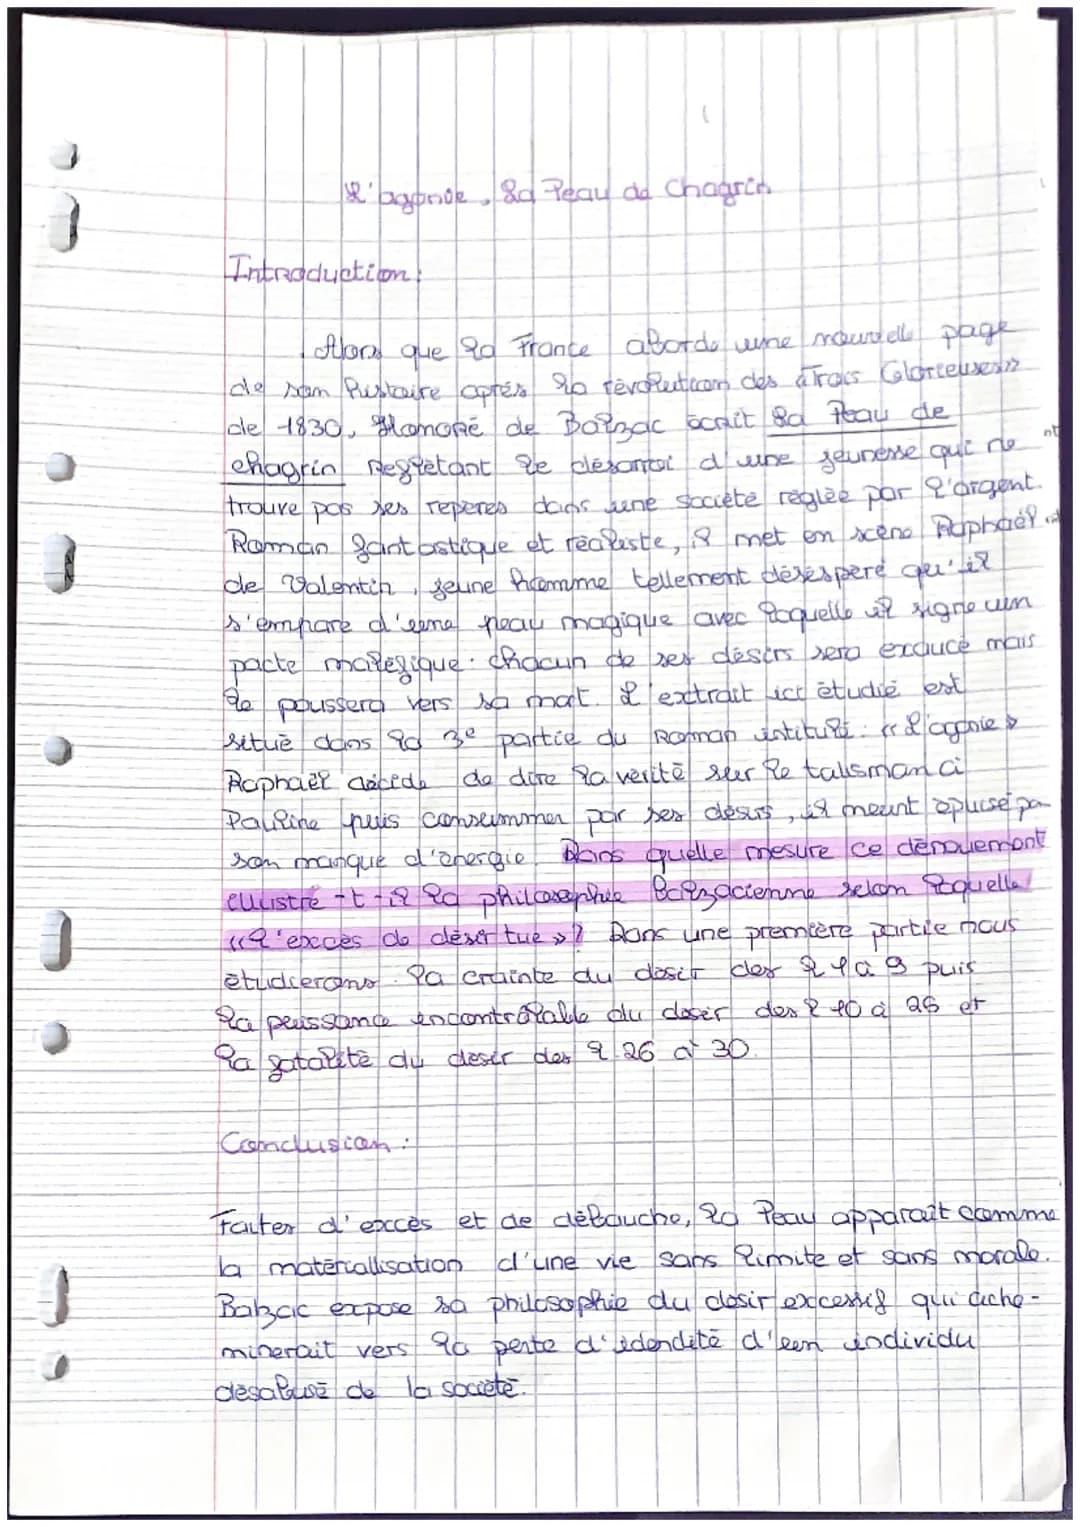 L'agonie, La Peau de Chagrin
Introduction :
Alors que la France aborde une nouvelle page
de son histoire après la révolution des « Trois Glorieuses »
de 1830, Honoré de Balzac écrit La Peau de
chagrin reflétant le désarroi d'une jeunesse qui ne
trouve pas ses repères dans une société réglée par l'argent.
Roman fantastique et réaliste, il met en scène Raphaël
de Valentin, jeune homme tellement désespéré qu'il
s'empare d'une peau magique avec laquelle il signe un
pacte maléfique : chacun de ses désirs sera exaucé mais
le poussera vers sa mort. L'extrait ici étudié est
situé dans la 3e partie du Roman intitulé : « L'agonie »
Raphaël décide de dire la vérité sur le talisman à
Pauline puis consummer par ses désirs, il meurt épuisé pa
son manque d'énergie. Dans quelle mesure ce dénouement
illustre-t-il la philosophie Balzacienne selon laquelle
« l'excès de désir tue » ? Dans une première partie nous
étudierons la crainte du désir des l 1 à 9 puis
la puissance incontrôlable du désir des l 10 à 26 et
la fatalité du désir des l 26 à 30.
Conclusion :
Faites d'excès et de débauche, la Peau apparaît comme
la matérialisation d'une vie sans limite et sans morale.
Balzac expose sa philosophie du désir excessif qui ache-
minerait vers la perte d'idendité d'un individu
désabusé de la société.